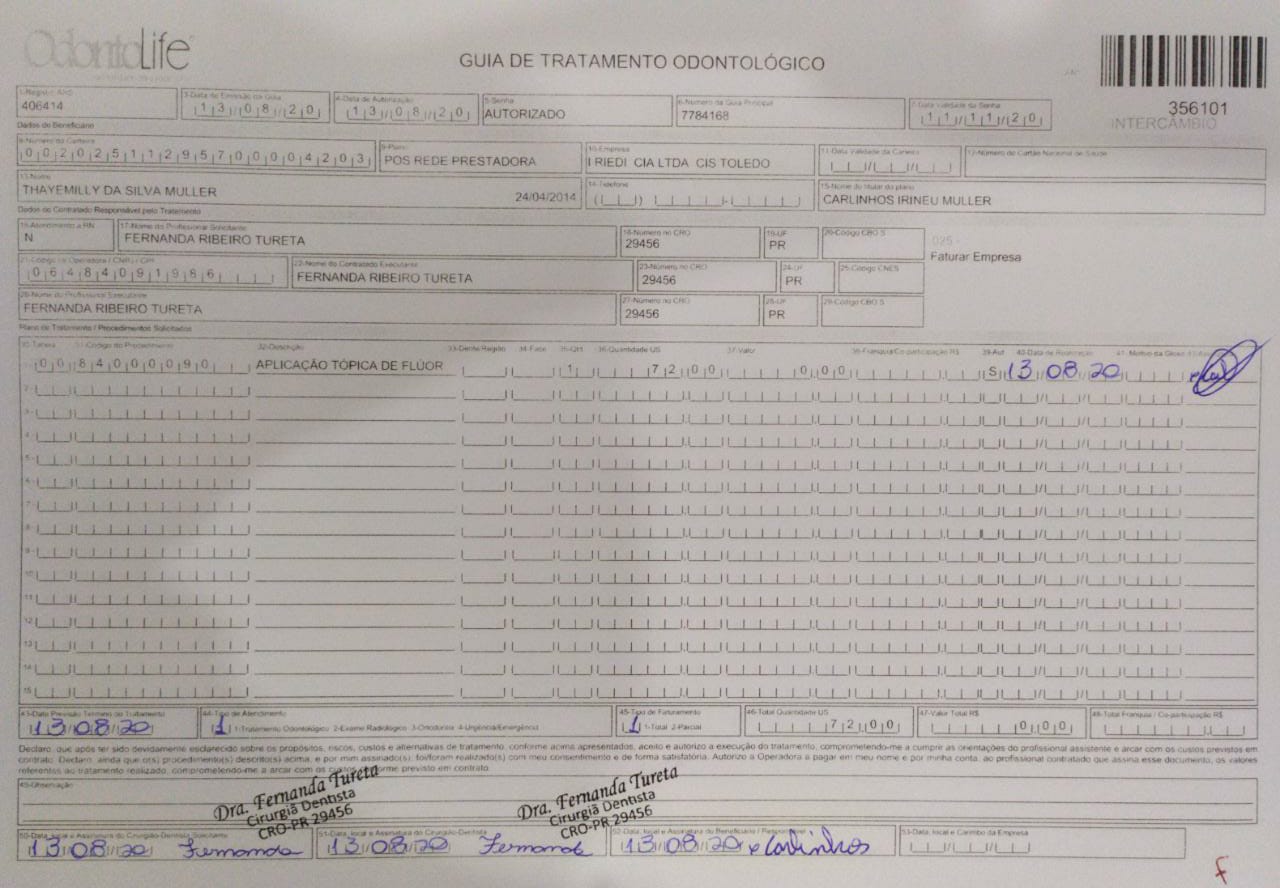 OdontoLife
GUIA DE TRATAMENTO ODONTOLÓGICO
356101
INTERCÂMBIO
1-Registro ANS
406414
3-Data de Emissão da Guia
13/08/20
4-Data de Autorização
13/08/20
5-Senha
AUTORIZADO
6-Número da Guia Principal
7784168
7-Data Validade da Senha
11/11/20
Dados do Beneficiário
8-Número da Carteira
00202511295700004203
9-Plano
POS REDE PRESTADORA
10-Empresa
I RIEDI CIA LTDA CIS TOLEDO
11-Data Validade da Carteira
12-Número do Cartão Nacional de Saúde
13-Nome
THAYEMILLY DA SILVA MULLER 24/04/2014
14-Telefone
15-Nome do titular do plano
CARLINHOS IRINEU MULLER
Dados do Contratado Responsável pelo Tratamento
16-Atendimento a RN
N
17-Nome do Profissional Solicitante
FERNANDA RIBEIRO TURETA
18-Número no CRO
29456
19-UF
PR
20-Código CBO S
025 -
Faturar Empresa
21-Código na Operadora / CNPJ / CPF
06484091986
22-Nome do Contratado Executante
FERNANDA RIBEIRO TURETA
23-Número no CRO
29456
24-UF
PR
25-Código CNES
26-Nome do Profissional Executante
FERNANDA RIBEIRO TURETA
27-Número no CRO
29456
28-UF
PR
29-Código CBO S
Plano de Tratamento / Procedimentos Solicitados
30-Tabela 31-Código do Procedimento 32-Descrição 33-Dente/Região 34-Face 35-Qtd 36-Quantidade US 37-Valor 38-Franquia/Co-participação R$ 39-Aut 40-Data de Realização 41-Motivo da Glosa
1- 00 84000090 APLICAÇÃO TÓPICA DE FLÚOR 1 72 00 0 00 S 13 08 20
2-
3-
4-
5-
6-
7-
8-
9-
10-
11-
12-
13-
14-
15-
43-Data Previsão Término do Tratamento
13/08/20
44-Tipo de Atendimento
1 1-Tratamento Odontológico 2-Exame Radiológico 3-Ortodontia 4-Urgência/Emergência
45-Tipo de Faturamento
1 1-Total 2-Parcial
46-Total Quantidade US
72 00
47-Valor Total R$
0 00
48-Total Franquia / Co-participação R$
Declaro, que após ter sido devidamente esclarecido sobre os propósitos, riscos, custos e alternativas de tratamento, conforme acima apresentados, aceito e autorizo a execução do tratamento, comprometendo-me a cumprir as orientações do profissional assistente e arcar com os custos previstos em
contrato. Declaro, ainda que o(s) procedimento(s) descrito(s) acima, e por mim assinado(s), foi/foram realizado(s) com meu consentimento e de forma satisfatória. Autorizo a Operadora a pagar em meu nome e por minha conta, ao profissional contratado que assina esse documento, os valores
referentes ao tratamento realizado, comprometendo-me a arcar com os custos conforme previsto em contrato.
49-Observação
Dra. Fernanda Tureta
Cirurgiã Dentista
CRO-PR 29456
Dra. Fernanda Tureta
Cirurgiã Dentista
CRO-PR 29456
50-Data, local e Assinatura do Cirurgião-Dentista Solicitante
13/08/20 Fernanda
51-Data, local e Assinatura do Cirurgião-Dentista
13/08/20 Fernanda
52-Data, local e Assinatura do Beneficiário / Responsável
13/08/20 x Carlinhos
53-Data, local e Carimbo da Empresa
f